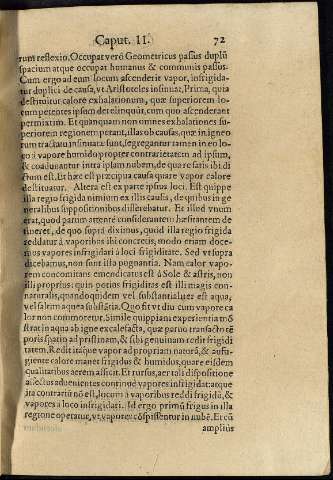 Caput. II. 72
rum reflexio. Occupat verò Geometricus passus duplũ
spacium atque occupat humanus & communis passus.
Cum ergo ad eum locum ascenderit vapor, infrigida-
tur duplici de causa, vt Aristoteles insinuat. Prima, quia
destituitur calore exhalationum, quæ superiorem lo-
cum petentes ipsum derelinquũt, cum quo ascenderant
permixtim. Et quanquam non omnes exhalationes su-
periorem regionem petant, illas ob causas, quæ in igneo-
rum tractatu insinuatæ sunt, segregantur tamen in eo lo-
co à vapore humido propter contrarietatem ad ipsum,
& coaduuantur intra ipsum nubem, de qua re satis ibi di-
ctum est. Et hæc est præcipua causa quare vapor calore
destituatur. Altera est ex parte ipsius loci. Est quippe
illa regio frigida nimium ex illis causis, de quibus in ge-
neralibus suppositionibus disserebatur. Et illud vnum
erat, quod parum attentè considerantem hæsitantem de-
tineret, de quo supra diximus, quòd illa regio frigida
reddatur à vaporibus ibi concretis, modo etiam doce-
mus vapores infrigidari à loci frigiditate. Sed vt supra
dicebamus, non sunt ista pugnantia. Nam calor vapo-
rem concomitans emendicatus est à Sole & astris, non
illi proprius: quin potius frigiditas est illi magis con-
naturalis, quandoquidem vel substantialiter est aqua,
vel saltem aquea substãtia. Quo fit vt diu cum vapore ca
lor non commoretur. Simile quippiam experientia mõ
strat in aqua ab igne excalefacta, quæ paruo transacto tẽ
poris spatio ad pristinam, & sibi genuinam redit frigidi
tatem. Redit itáque vapor ad propriam naturã, & aufu-
giente calore manet frigidus & humidus, quare eisdem
qualitatibus aerem afficit. Et rursus, aer tali dispositione
affectus aduenientes continuò vapores infrigidat: atque
ita contrariũ nõ est, locum à vaporibus reddi frigidũ, &
vapores à loco infrigidari. Id ergo primũ frigus in illa
regione operatur, vt vapores cõspissentur in nubẽ. Et cũ
amplius